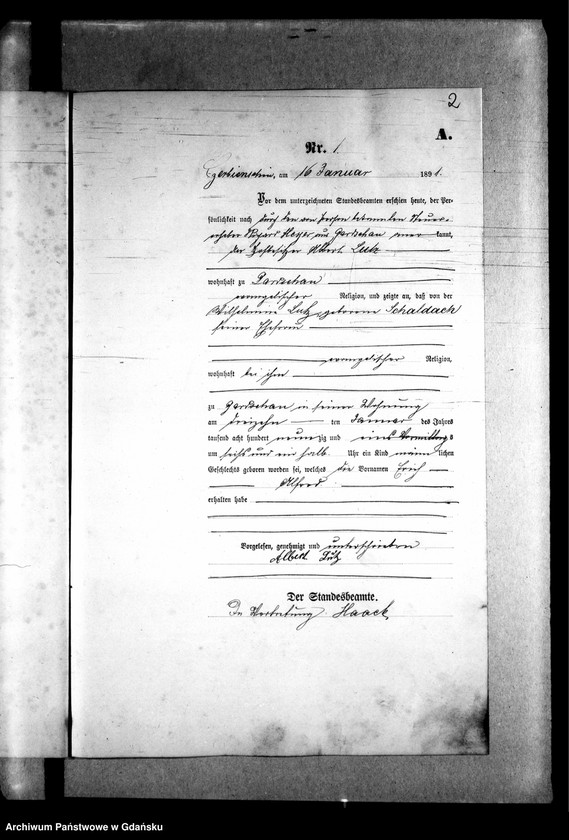 2
A.
Nr. 1
am 16 Januar 1891.
Vor dem unterzeichneten Standesbeamten erschien heute, der Per-
sönlichkeit nach durch den von Person bekannten Steuer-
erheber Meyer aus Gardschau aner kannt,
der Hofbesitzer Albert Lutz
wohnhaft zu Gardschau
evangelischer Religion, und zeigte an, daß von der
Wilhelmine Lutz, geborene Schaldach
seiner Ehefrau
evangelischer Religion,
wohnhaft bei ihm
zu Gardschau in seiner Wohnung
am dreizehn ten Januar des Jahres
tausend acht hundert neun zig und eins Vormittag s
um sechs und ein halb Uhr ein Kind männ lichen
Geschlechts geboren worden sei, welches die Vornamen Erich
Alfred
erhalten habe
Vorgelesen, genehmigt und unterschrieben
Albert Lutz
Der Standesbeamte.
In Vertretung Haack
Archiwum Państwowe w Gdańsku